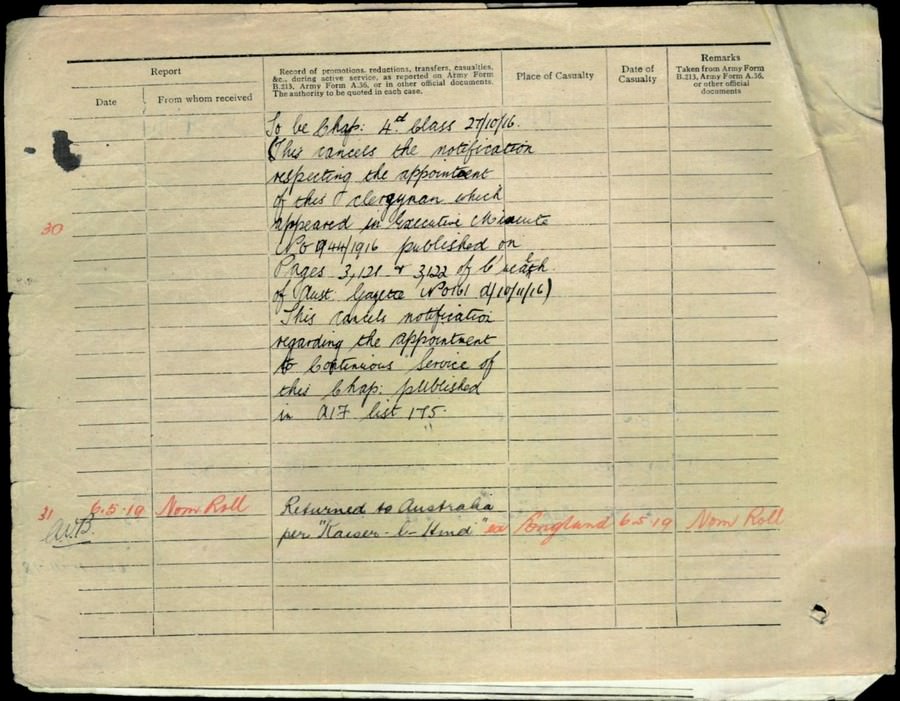 Report
Date
From whom received
Record of promotions, reductions, transfers, casualties,
&c., during active service, as reported on Army Form
B.213, Army Form A.36, or in other official documents.
The authority to be quoted in each case.
Place of Casualty
Date of
Casualty
Remarks
Taken from Army Form
B.213, Army Form A.36,
or other official
documents
To be Chap: 4th Class 27/10/16.
(This cancels the notification
respecting the appointment
of this clergyman which
30
appeared in Executive Minute
No 944/1916 published on
Pages 3,121 & 3,122 of C'wealth
of Aust. Gazette No 161 d/10/11/16)
This cancels notification
regarding the appointment
to Continuous Service of
this Chap: published
in AIF list 175.
31 6.5.19 Nom Roll Returned to Australia
per "Kaiser-i-Hind" ex England 6.5.19 Nom Roll